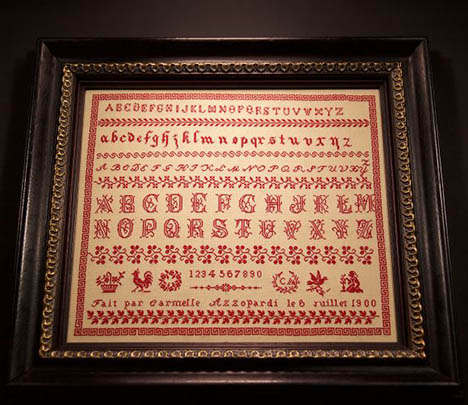 ABCDEFGHIJKLMNOPQRSTUVWXYZ
abcdefghijklmnopqrstuvxyz
ABCDEFGHIJKLMNOPQRSTUVXYZ
ABCDEFGHIKLM
NOPQRSTUVXYZ
1234567890
CA
Fait par Carmelle Azzopardi le 6 juillet 1900